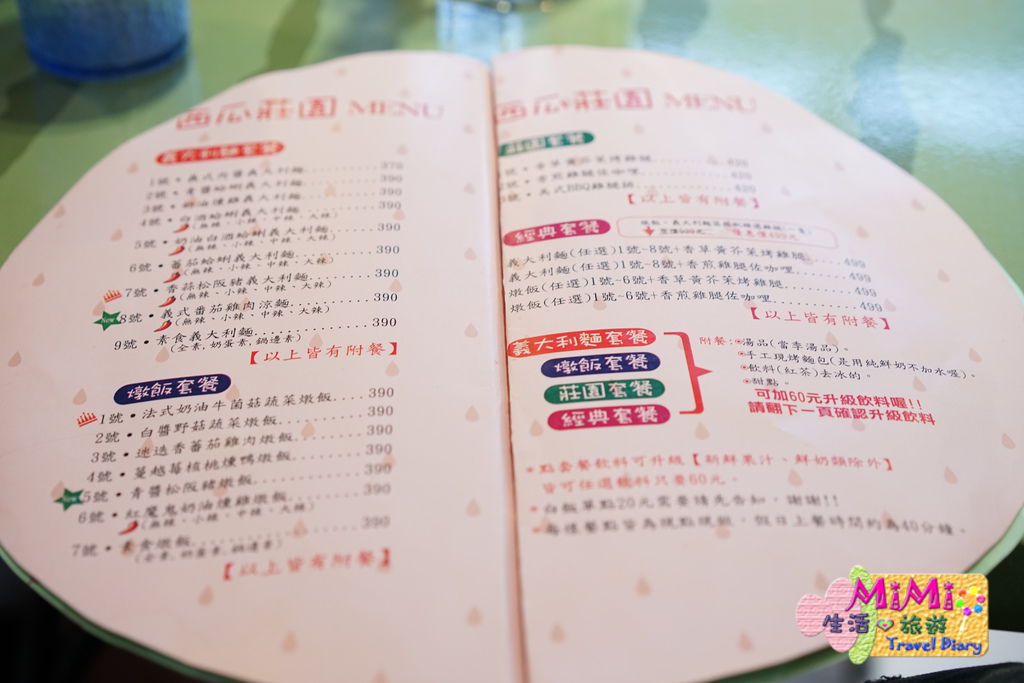 西瓜莊園 MENU
義大利麵套餐
1號•義式肉醬義大利麵..........370
2號•青醬蛤蜊義大利麵..........390
3號•奶油燻雞義大利麵..........390
4號•白酒蛤蜊義大利麵..........390
(無辣、小辣、中辣、大辣)
5號•奶油白酒蛤蜊義大利麵..........390
(無辣、小辣、中辣、大辣)
6號•蕃茄蛤蜊義大利麵..........390
(無辣、小辣、中辣、大辣)
7號•香蒜松阪豬義大利麵..........390
(無辣、小辣、中辣、大辣)
New 8號•義式番茄雞肉涼麵..........390
(無辣、小辣、中辣、大辣)
9號•素食義大利麵..........390
(全素,奶蛋素,鍋邊素)
【以上皆有附餐】
燉飯套餐
1號•法式奶油牛菌菇蔬菜燉飯....390
2號•白醬野菇蔬菜燉飯..........390
3號•迷迭香蕃茄雞肉燉飯..........390
4號•蔓越莓核桃燻鴨燉飯..........390
New 5號•青醬松阪豬燉飯..........390
6號•紅魔鬼奶油燻雞燉飯..........390
(無辣、小辣、中辣、大辣)
7號•素食燉飯..........390
(全素,奶蛋素,鍋邊素)
【以上皆有附餐】
西瓜莊園 MENU
莊園套餐
香草黃芥茉烤雞腿..........420
香煎雞腿佐咖哩..........420
美式BBQ雞腿排..........420
【以上皆有附餐】
經典套餐
義大利麵(任選)1號~8號+香草黃芥茉烤雞腿......499
義大利麵(任選)1號~8號+香煎雞腿佐咖哩........499
燉飯(任選)1號~6號+香草黃芥茉烤雞腿..........499
燉飯(任選)1號~6號+香煎雞腿佐咖哩............499
【以上皆有附餐】
義大利麵套餐
燉飯套餐
莊園套餐
經典套餐
附餐:•湯品(當季湯品)。
•手工現烤麵包(是用純鮮奶不加水喔)。
•飲料(紅茶)去冰的。
•甜點。
可加60元升級飲料喔!!
請翻下一頁確認升級飲料
•點套餐飲料可升級【新鮮果汁、鮮奶類除外】
皆可任選飲料只要60元。
•白飯單點20元需要請先告知,謝謝!!
•每樣餐點皆為現點現做,假日上餐時間約為40分鐘。
MiMi
生活 旅遊
Travel Diary